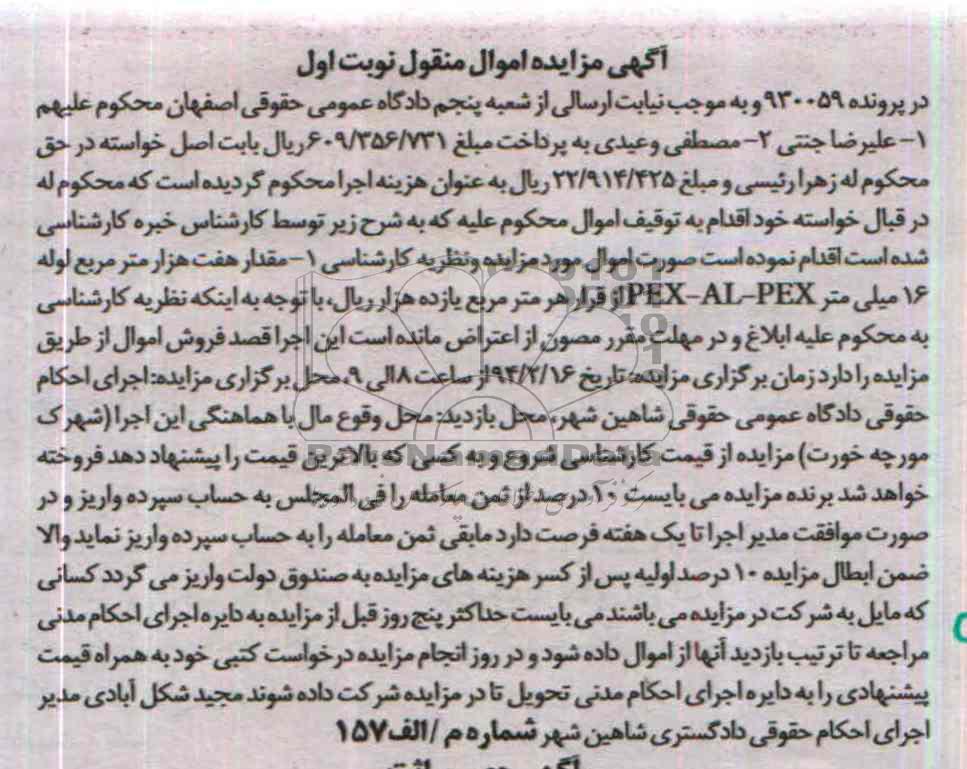 آگهی مزایده اموال منقول نوبت اول
در پرونده ۹۳۰۰۵۹ و به موجب نیابت ارسالی از شعبه پنجم دادگاه عمومی حقوقی اصفهان محکوم علیهم
۱- علیرضا جنتی ۲- مصطفی وعیدی به پرداخت مبلغ ۶۰۹/۳۵۶/۷۳۱ ریال بابت اصل خواسته در حق
محکوم له زهرا رئیسی و مبلغ ۲۲/۹۱۴/۴۲۵ ریال به عنوان هزینه اجرا محکوم گردیده است که محکوم له
در قبال خواسته خود اقدام به توقیف اموال محکوم علیه که به شرح زیر توسط کارشناس خبره کارشناسی
شده است اقدام نموده است صورت اموال مورد مزایده ونظریه کارشناسی ۱- مقدار هفت هزار متر مربع لوله
۱۶ میلی متر PEX-AL-PEX از قرار هر متر مربع یازده هزار ریال، با توجه به اینکه نظریه کارشناسی
به محکوم علیه ابلاغ و در مهلت مقرر مصون از اعتراض مانده است این اجرا قصد فروش اموال از طریق
مزایده را دارد زمان برگزاری مزایده: تاریخ ۹۴/۲/۱۶ از ساعت ۸ الی ۹، محل برگزاری مزایده: اجرای احکام
حقوقی دادگاه عمومی حقوقی شاهین شهر، محل بازدید: محل وقوع مال با هماهنگی این اجرا (شهرک
مورچه خورت) مزایده از قیمت کارشناسی شروع و به کسی که بالاترین قیمت را پیشنهاد دهد فروخته
خواهد شد برنده مزایده می بایست ۱۰ درصد از ثمن معامله را فی المجلس به حساب سپرده واریز و در
صورت موافقت مدیر اجرا تا یک هفته فرصت دارد مابقی ثمن معامله را به حساب سپرده واریز نماید والا
ضمن ابطال مزایده ۱۰ درصد اولیه پس از کسر هزینه های مزایده به صندوق دولت واریز می گردد کسانی
که مایل به شرکت در مزایده می باشند می بایست حداکثر پنج روز قبل از مزایده به دایره اجرای احکام مدنی
مراجعه تا ترتیب بازدید آنها از اموال داده شود و در روز انجام مزایده درخواست کتبی خود به همراه قیمت
پیشنهادی را به دایره اجرای احکام مدنی تحویل تا در مزایده شرکت داده شوند مجید شکل آبادی مدیر
اجرای احکام حقوقی دادگستری شاهین شهر شماره م /الف ۱۵۷
ParsNamadData